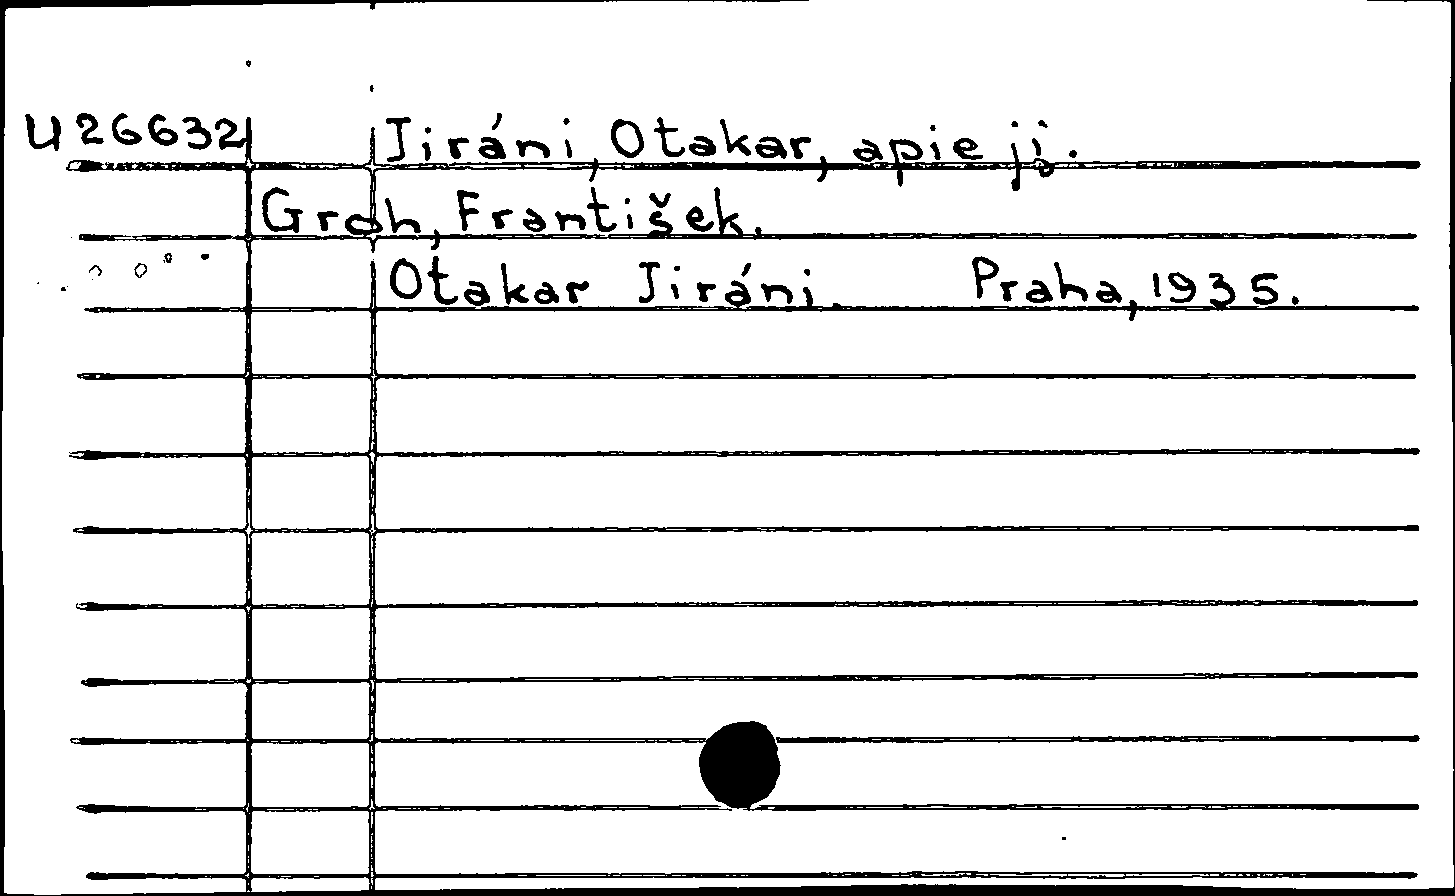 U26632 Jiráni, Otakar, apie jį.
Groh, František.
Otakar Jiráni. Praha, 1935.